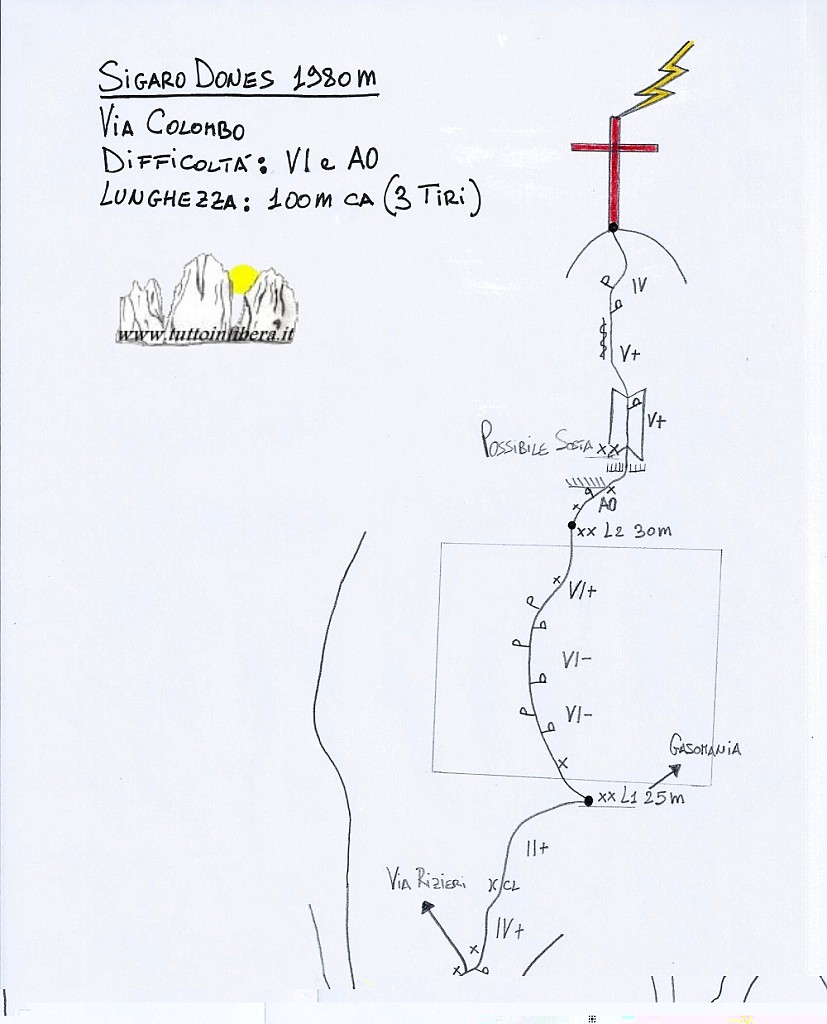 SIGARO DONES 1980M
VIA COLOMBO
DIFFICOLTÀ: VI e A0
LUNGHEZZA: 100M CA (3 TIRI)
www.tuttoinlibera.it
IV
V+
V+
POSSIBILE SOSTA XX
A0
XX L2 30M
VI+
VI-
VI-
GASOMANIA
XX L1 25M
II+
VIA RIZIERI
CL
IV+